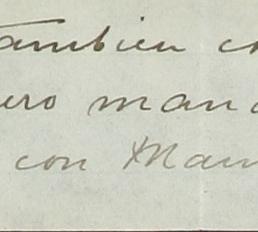 tambien c
ero man
con Mam